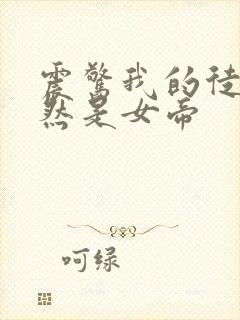 震惊我的徒
然是女帝
呵绿